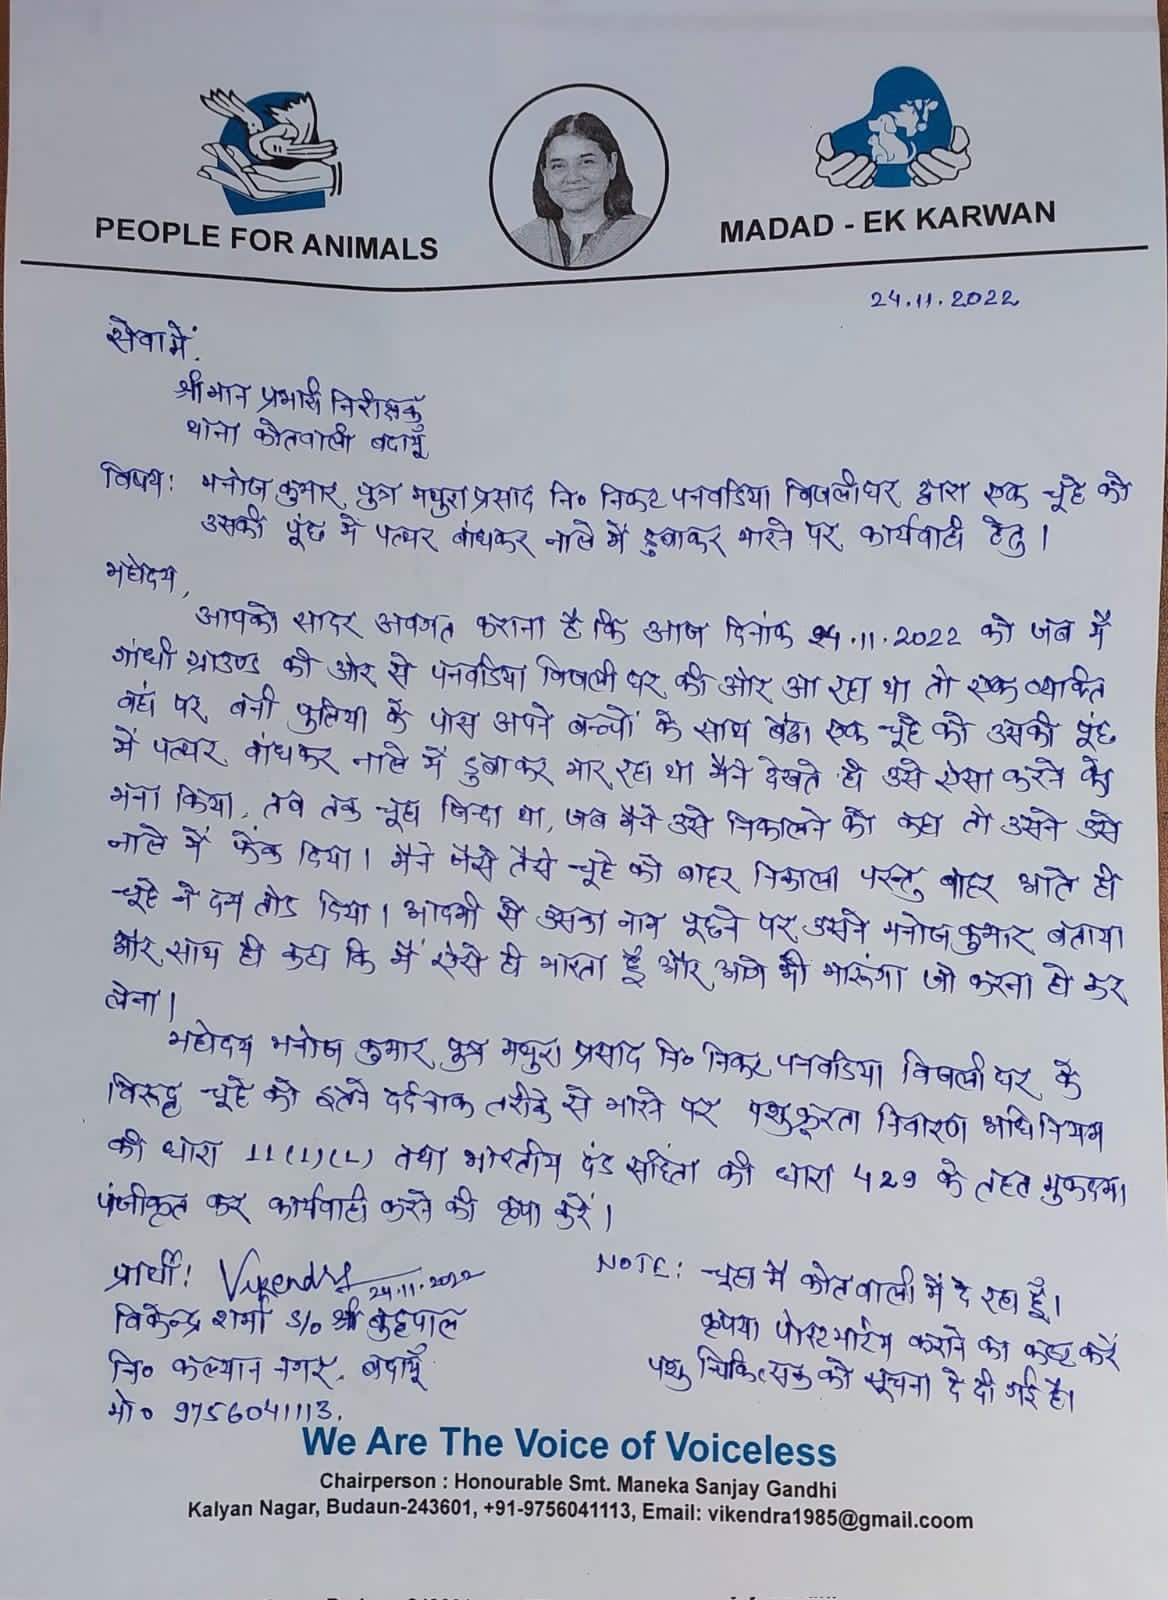 PEOPLE FOR ANIMALS
MADAD - EK KARWAN
24.11.2022
सेवा में,
श्रीमान प्रभारी निरीक्षक
थाना कोतवाली बदायूँ
विषय: मनोज कुमार पुत्र मथुरा प्रसाद नि० निकट पनवडिया बिजलीघर द्वारा एक चूहे को
उसकी पूंछ में पत्थर बांधकर नाले में डुबाकर मारने पर कार्यवाही हेतु।
महोदय,
आपको सादर अवगत कराना है कि आज दिनांक 24.11.2022 को जब मैं
गांधी ग्राउण्ड की ओर से पनवडिया बिजली घर की ओर आ रहा था तो एक व्यक्ति
वहां पर बनी पुलिया के पास अपने बच्चों के साथ बैठा एक चूहे को उसकी पूंछ
में पत्थर बांधकर नाले में डुबाकर मार रहा था मैंने देखते ही उसे ऐसा करने को
मना किया, तब तक चूहा जिन्दा था, जब मैंने उसे निकालने को कहा तो उसने उसे
नाले में फेंक दिया। मैंने जैसे तैसे चूहे को बाहर निकाला परन्तु बाहर आते ही
चूहे ने दम तोड दिया। आदमी से उसका नाम पूछने पर उसने मनोज कुमार बताया
और साथ ही कहा कि मैं ऐसे ही मारता हूँ और आगे भी मारूंगा जो करना हो कर
लेना।
महोदय मनोज कुमार पुत्र मथुरा प्रसाद नि० निकट पनवडिया बिजली घर के
विरूद्ध चूहे को इतने दर्दनाक तरीके से मारने पर पशु क्रूरता निवारण अधिनियम
की धारा 11(1)(L) तथा भारतीय दंड संहिता की धारा 429 के तहत मुकदमा
पंजीकृत कर कार्यवाही करने की कृपा करें।
प्रार्थी: Vikendra
24.11.2022
विकेन्द्र शर्मा S/o श्री बुद्धपाल
नि० कल्यान नगर, बदायूँ
मो० 9756041113.
NOTE: चूहा मैं कोतवाली में दे रहा हूँ।
कृपया पोस्टमार्टम कराने का कष्ट करें
पशु चिकित्सक को सूचना दे दी गई है।
We Are The Voice of Voiceless
Chairperson : Honourable Smt. Maneka Sanjay Gandhi
Kalyan Nagar, Budaun-243601, +91-9756041113, Email: vikendra1985@gmail.coom